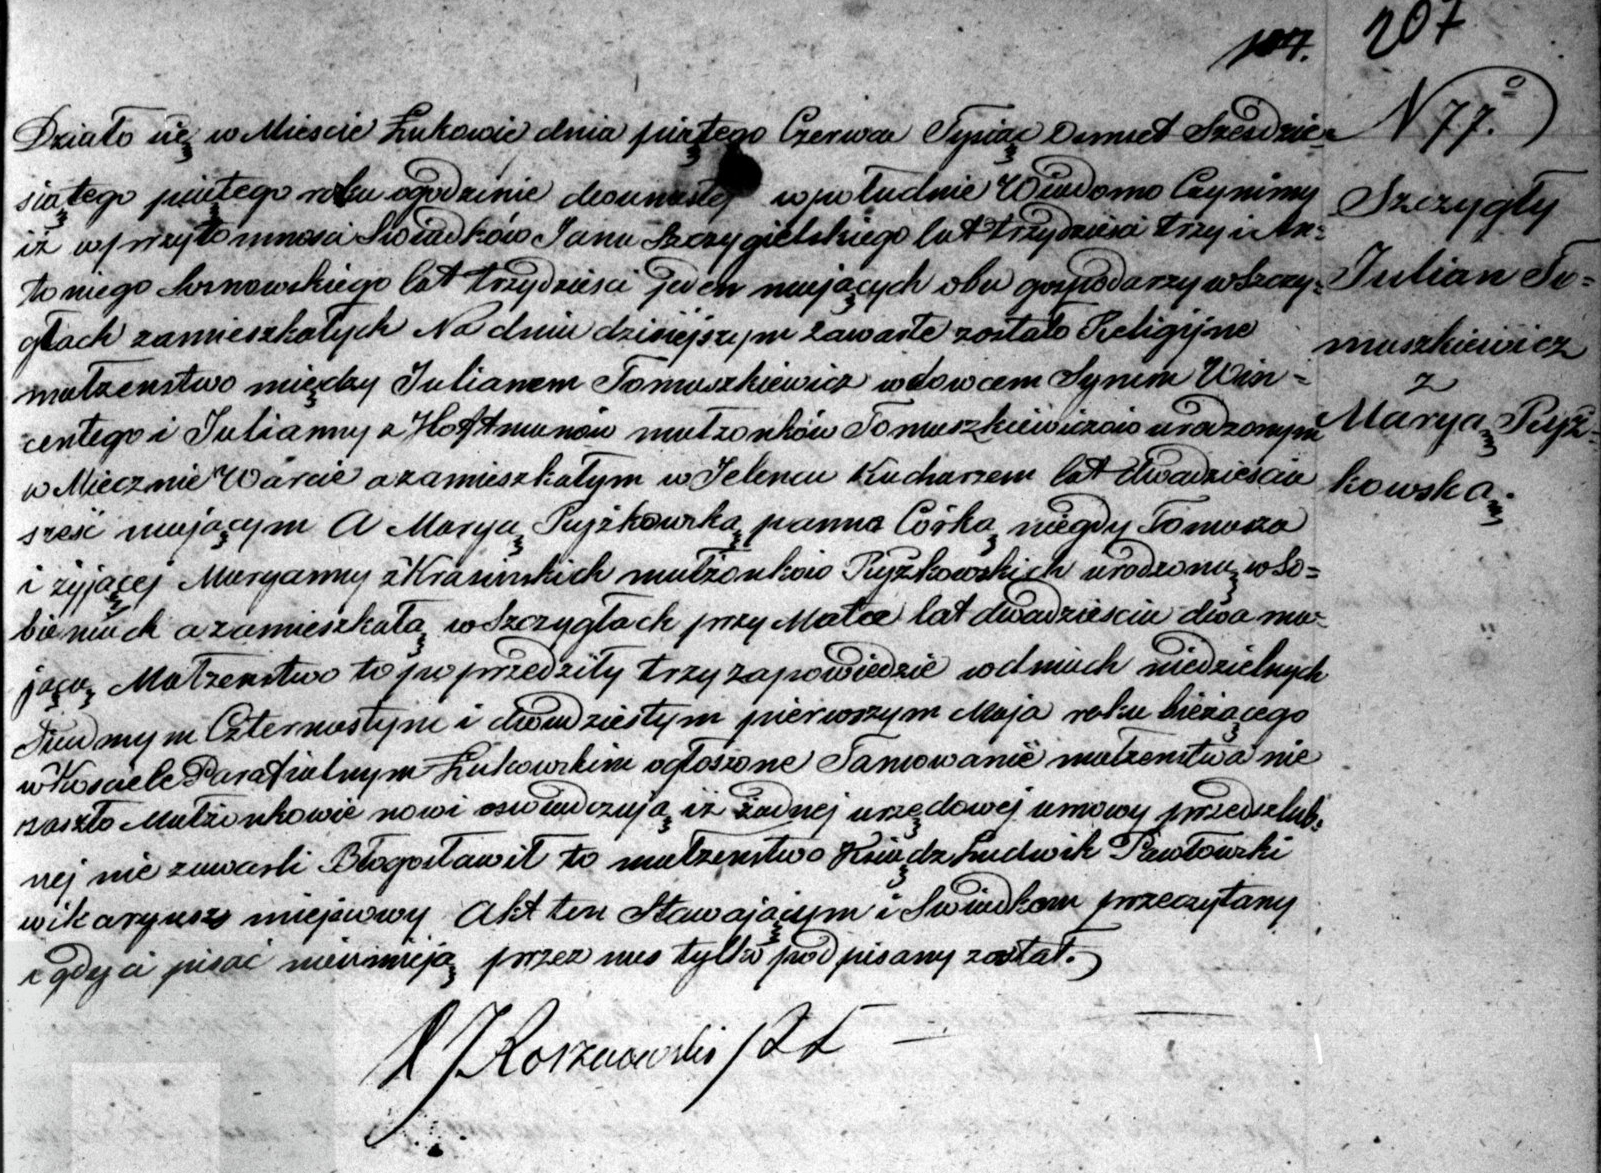 107. 207
Działo się w Mieście Łukowie dnia piątego Czerwca Tysiąc Osmset Szesdzie=
siątego piątego roku ogodzinie dwunastej wpołudnie Wiadomo Czynimy
iż wprzytomnosci Swiadków Jana Szczygielskiego lat trzydziesci trzy i An=
toniego Sosnowskiego lat trzydziesci jeden mających obu gospodarzy w Szczy=
głach zamieszkałych Na dniu dzisiejszym zawarte zostało Religijne
małzenstwo między Julianem Tomaszkiewicz wdowcem Synem Win=
centego i Julianny z Hoffmanów małzonków Tomaszkiewiczów urodzonym
w Miecznie Warcie a zamieszkałym w Jelencu Kucharzem lat dwadziescia
szesc mającym A Maryą Ryżkowską panna Córką niegdy Tomasza
i żyjącej Maryanny z Krasinskich małżonków Ryżkowskich urodzoną w So=
bieniach a zamieszkałą w Szczygłach przy Matce lat dwadziescia dwa ma=
jącą Małzenstwo to poprzedziły trzy zapowiedzie w dniach niedzielnych
Siudmym Czternastym i dwudziestym pierwszym Maja roku bieżącego
w Kosciele Parafialnym Łukowskim ogłoszone Tamowanie małzenstwa nie
zaszło Małżonkowie nowi oswiadczają iż żadnej urzędowej umowy przedszlub=
nej nie zawarli Błogosławił to małzenstwo Ksiądz Ludwik Pawłowski
wikaryusz miejscowy Akt ten Stawającym i Swiadkom przeczytany
a gdy ci pisać nieumieją przez nas tylko podpisany został.
N 77.
Szczygły
Julian To=
maszkiewicz
z
Maryą Ryż=
kowską.